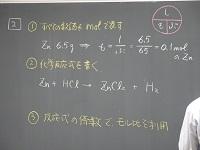 2
① すべての数値を mol で表す
Zn 6.5g ⇒ t = 6.5/65 = 0.1 mol
② 化学反応式を書く
Zn + HCl → ZnCl₂ + H₂
③ 反応式の係数でモル比を利用